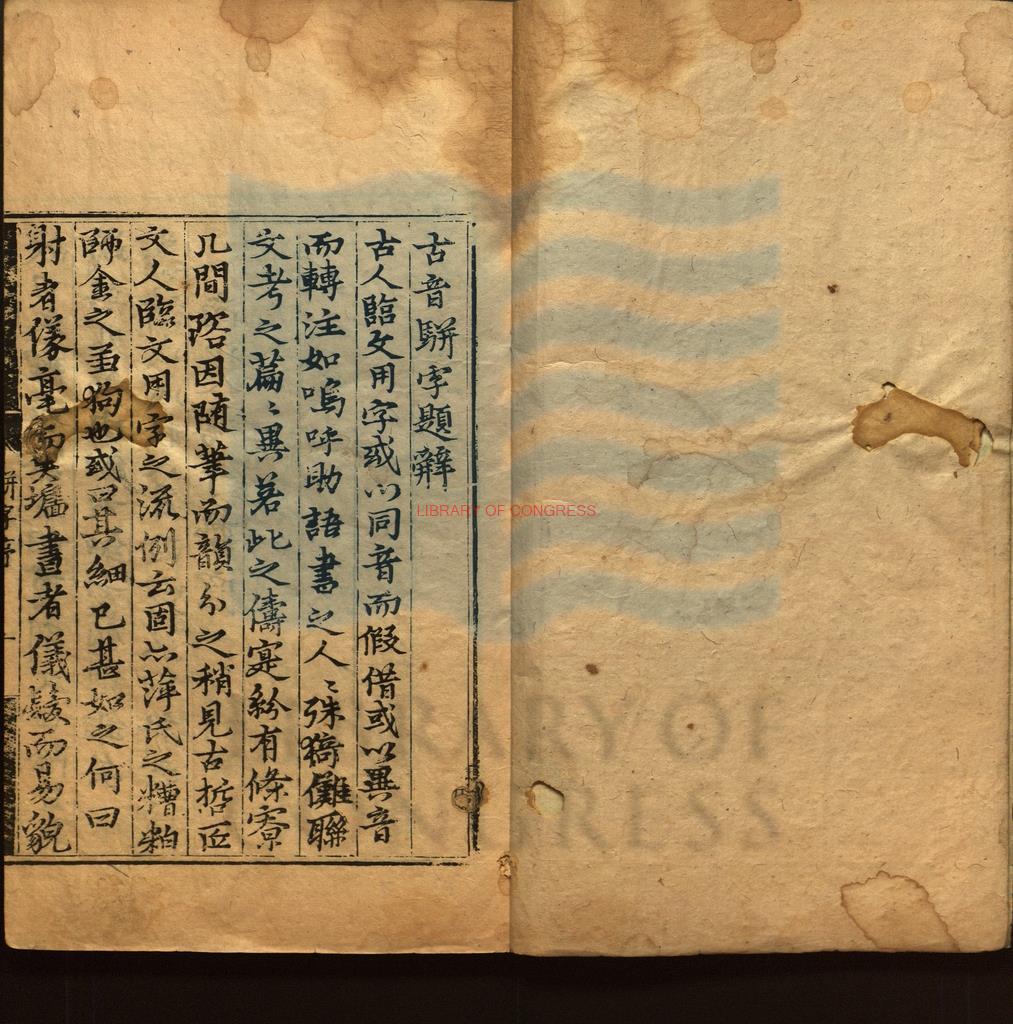 古音駢字題辭
古人臨文用字或以同音而假借或以異音
而轉注如嗚呼助語書之人〻殊猗儺聯
文考之篇〻異若此之儔寔紛有條寮
几間跲因随筆而韻分之稍見古哲匠
文人臨文用字之流例云固亦萍氏之糟粕
師金之芻狗也或曰其細已甚如之何曰
射者儀毫而失墻畫者儀髮而易貌
駢字序
一
LIBRARY OF CONGRESS
LIBRARY OF
CONGRESS